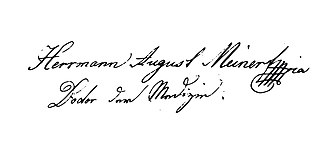 Herrmann August Meinert
Doctor der Medizin.